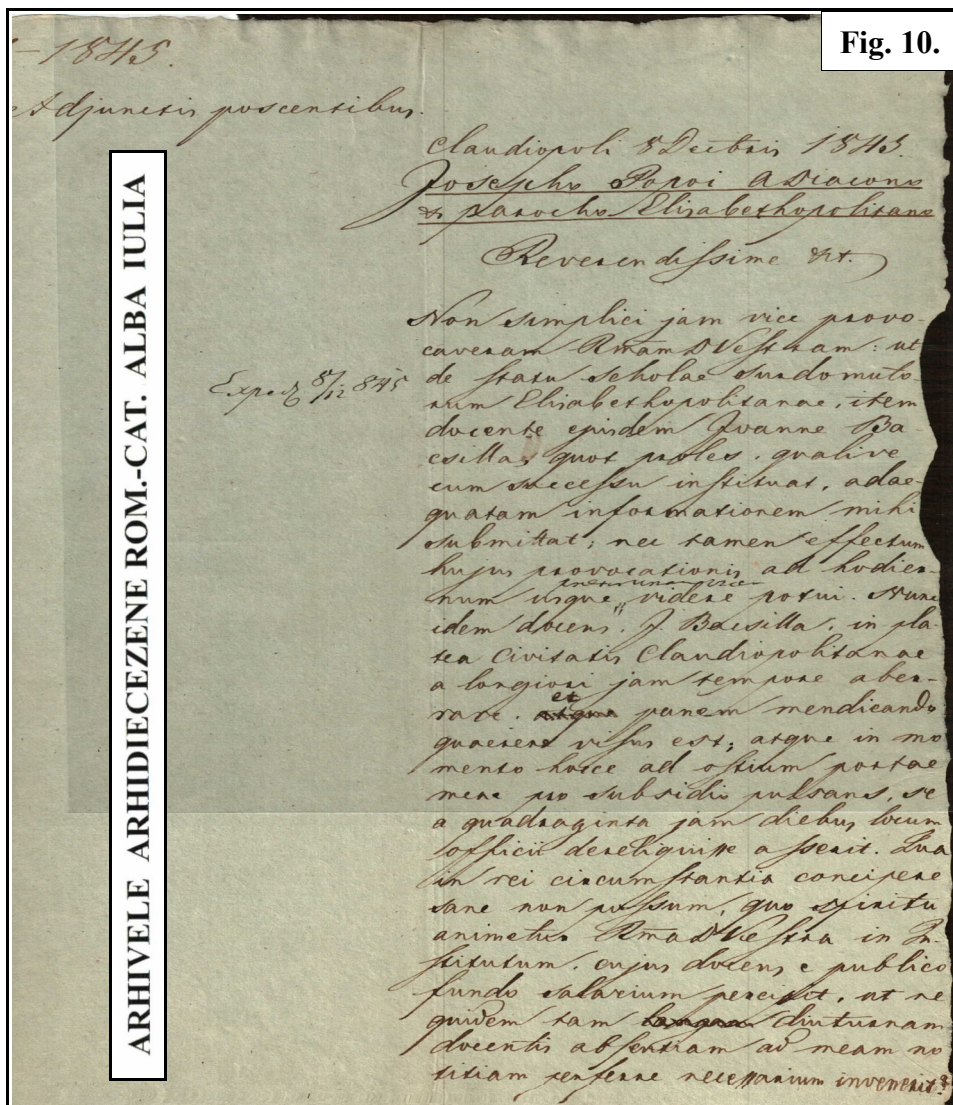 Fig. 10.
– 1845.
Adjunctis poscentibus.
Claudiopoli 8 Decbris 1845.
Josepho Papai ADiacono
& parocho Elisabethopolitano
Reverendissime &t.
Non simplici jam vice provo-
caveram Rmam DVestram: ut
de statu scholae surdomuto-
rum Elisabethopolitanae, item
docente ejusdem Joanne Ba-
csilla, quot proles, qualive
cum successu instituat, adae-
quatam informationem mihi
submittat; nec tamen effectum
hujus provocationis ad hodier-
num usque videre potui. Nunc
idem docens J. Bacsilla, in pla-
tea Civitatis Claudiopolitanae
a longiori jam tempore aber-
rare, et panem mendicando
quaerere visus est; atque in mo
mento hocce ad ostium portae
meae pro subsidii pulsans, se
a quadraginta jam diebus locum
officii dereliquisse asserit. Qua
in rei circumstantia concipere
sane non possum, quo spiritu
animetur Rma DVestra in In-
stitutum, cujus docens e publico
fundo salarium percipit, ut ne
quidem tam diuturnam
docentis absentiam ad meam no
titiam perferre necessarium invenerit?
Exped 8/12 845
ARHIVELE ARHIDIECEZENE ROM.-CAT. ALBA IULIA